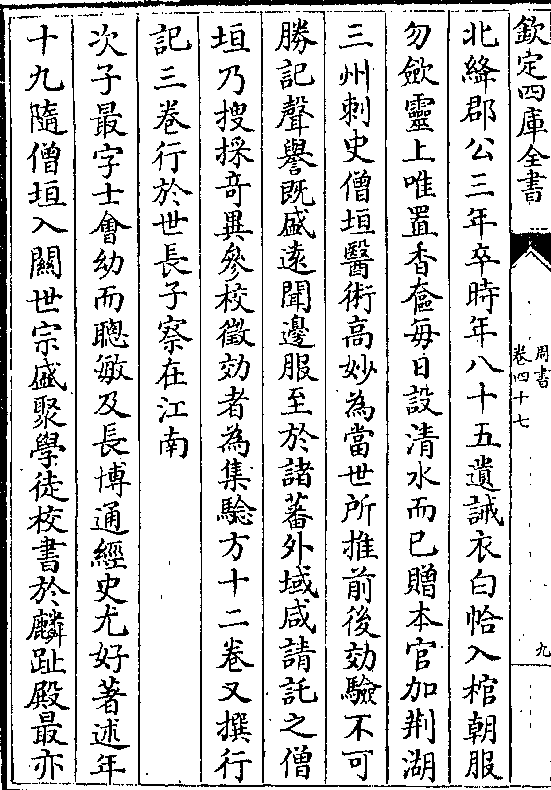 欽定四庫全書
周書
卷四十七
九
北絳郡公三年卒時年八十五遺誡衣白帢入棺朝服
勿斂靈上唯置香奩每日設清水而已贈本官加荆湖
三州刺史僧垣醫術高妙為當世所推前後効驗不可
勝記聲譽既盛遠聞邊服至於諸蕃外域咸請託之僧
垣乃搜採奇異參校徵効者為集驗方十二卷又撰行
記三卷行於世長子察在江南
次子最字士會幼而聰敏及長博通經史尤好著述年
十九隨僧垣入關世宗盛聚學徒校書於麟趾殿最亦